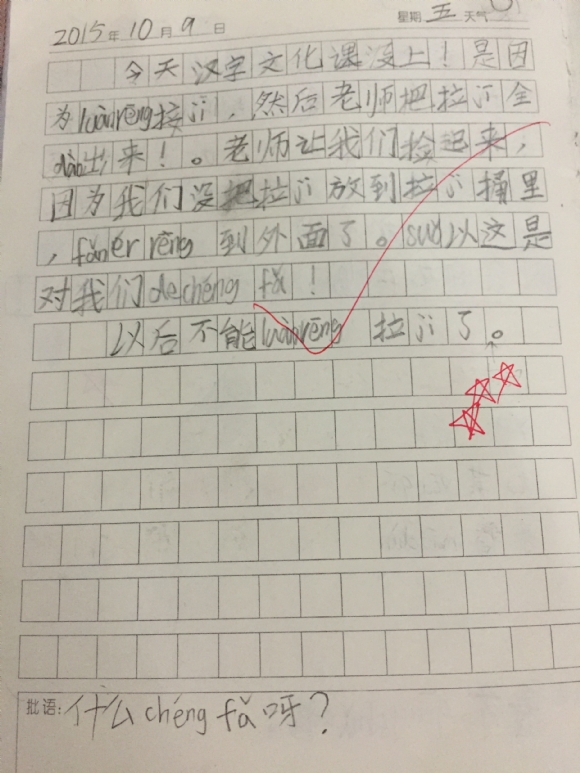 2015年10月9日 星期五天气
今天汉字文化课没上！是因
为luànrēng拉jī，然后老师把拉jī全
dào出来！。老师让我们捡起来，
因为我们没把拉jī放到拉jī捅里
，fǎnér rēng到外面了。suǒ以这是
对我们dechéng fǎ！
以后不能luànrēng拉jī了。
批语：什么chéng fǎ呀？